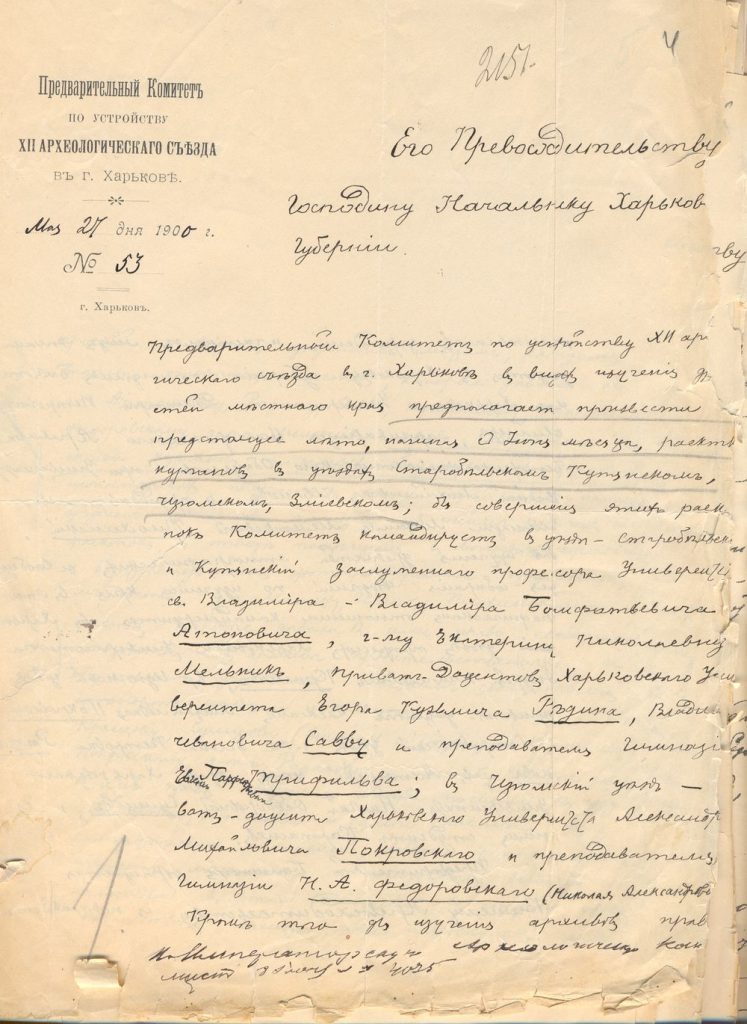 2151.
4
Предварительный Комитетъ
ПО УСТРОЙСТВУ
XII АРХЕОЛОГИЧЕСКАГО СЪѢЗДА
въ г. Харьковѣ.
Мая 27 дня 1900 г.
№ 53
г. Харьковъ.
Его Превосходительству
Господину Начальнику Харьков
Губерніи.
Предварительный Комитетъ по устройству XII ар
гическаго съѣзда въ г. Харьковѣ въ видахъ изученія
стей мѣстнаго края предполагаетъ произвести
предстоящее лѣто, начиная съ Іюня мѣсяца, раскоп
кургановъ въ уѣздахъ Старобѣльскомъ, Купянскомъ,
Изюмскомъ, Зміевскомъ; для совершенія этихъ раск
покъ Комитетъ командируетъ въ уѣзды – Старобѣльскі
и Купянскій заслуженнаго профессора Университ
св. Владиміра – Владиміра Бонифатьевича
Антоновича, г-жу Екатерину Николаевну
Мельникъ, приват-доцентовъ Харьковскаго Уни
верситета Егора Кузьмича Рѣдина, Влади
Ивановича Савву и преподавателя гимназіи
Трифильева; въ Изюмскій уѣздъ –
ватъ-доцента Харьковскаго Университета Александр
Михайловича Покровскаго и преподавателя
гимназіи Н. А. Федоровскаго (Николая Александров
Кромѣ того для изученія архивовъ прав
Императорскую Археологическ Ком